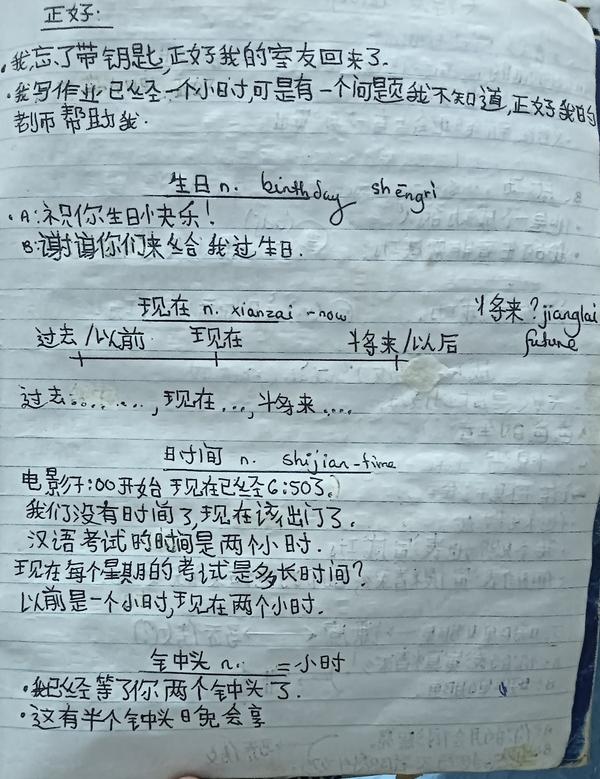 正好:
·我忘了带钥匙,正好我的室友回来了.
·我写作业已经一个小时,可是有一个问题我不知道,正好我的
老师帮助我.
生日 n. birthday shēngrì
·A:祝你生日快乐!
B:谢谢你们来给我过生日.
现在 n. xianzai -now 将来?jianglai
过去/以前 现在 将来/以后 future
过去........,现在...,将来....
时间 n. shijian-time
电影7:00开始 现在已经6:50了。
我们没有时间了,现在该出门了.
汉语考试的时间是两个小时.
现在每个星期的考试是多长时间?
以前是一个小时,现在两个小时.
钟头 n. =小时
·我已经等了你两个钟头了.
·这有半个钟头